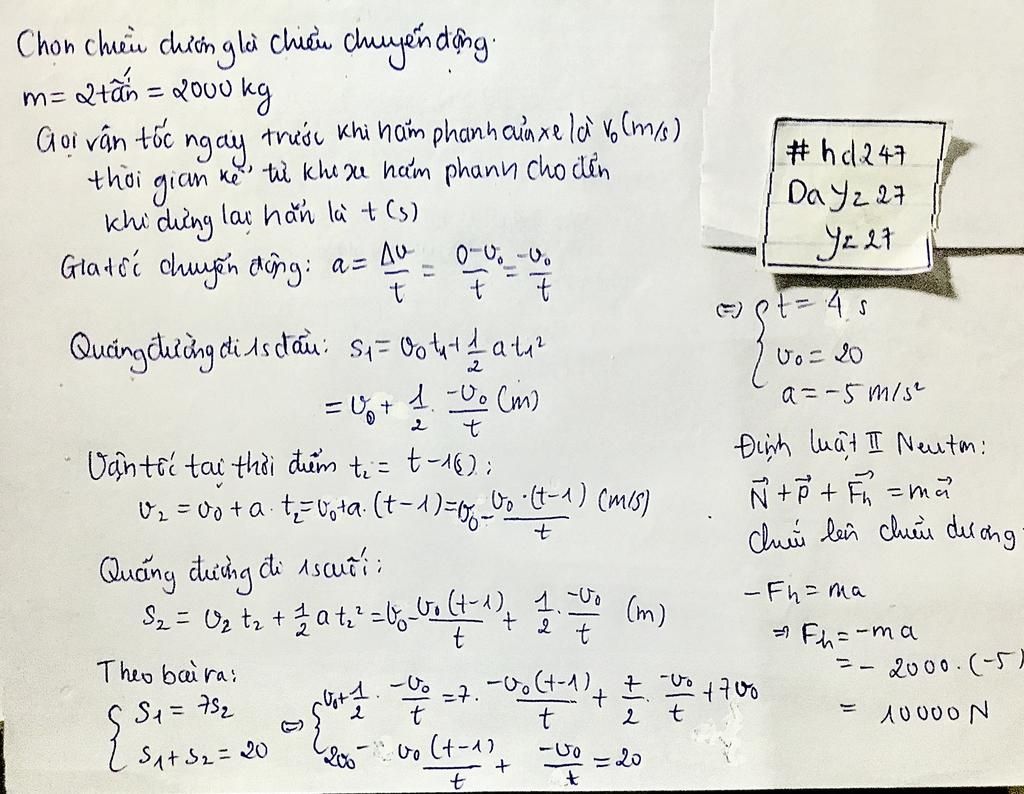 Chọn chiều dương là chiều chuyển động.
m = 2 tấn = 2000 kg
Gọi vận tốc ngay trước khi hãm phanh của xe là v₀ (m/s)
thời gian kể từ khi xe hãm phanh cho đến
khi dừng lại hẳn là t (s)
Gia tốc chuyển động: a = Δv/t = (0-v₀)/t = -v₀/t
Quãng đường đi 1s đầu: S₁ = v₀t₁ + 1/2 a t₁²
= v₀ + 1/2 . -v₀/t (m)
Vận tốc tại thời điểm t₂ = t - 1(s):
v₂ = v₀ + a . t₂ = v₀ + a . (t-1) = v₀ - v₀.(t-1)/t (m/s)
Quãng đường đi 1s cuối:
S₂ = v₂t₂ + 1/2 a t₂² = v₀ - v₀(t-1)/t + 1/2 . -v₀/t (m)
Theo bài ra:
{ S₁ = 7S₂ ⇔ { v₀ + 1/2 . -v₀/t = 7 . -v₀(t-1)/t + 7/2 . -v₀/t + 7v₀
S₁ + S₂ = 20 2v₀ - v₀(t-1)/t + -v₀/t = 20
#hd247
Day = 27
y = 27
⇔ { t = 4 s
v₀ = 20
a = -5 m/s²
Định luật II Newton:
N⃗ + P⃗ + F⃗h = ma⃗
Chiếu lên chiều dương:
-Fh = ma
⇒ Fh = -ma
= - 2000 . (-5)
= 10000 N